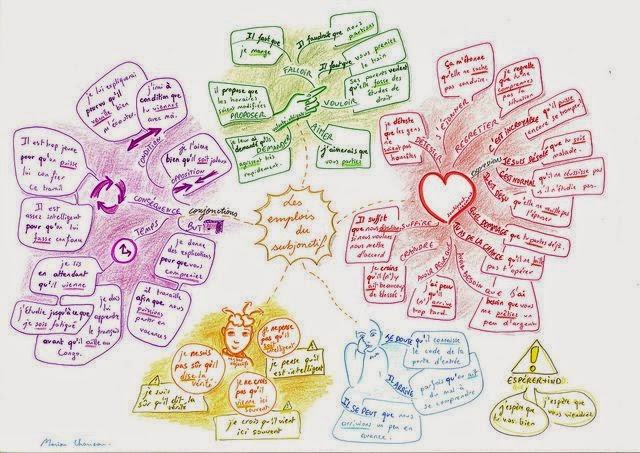 Les
emplois du
subjonctif
Il faut que
je mange
Il faudrait que nous
partions
Il faut que vous preniez
le train
FALLOIR
Ses parents veulent
qu'elle fasse des
études de
droit
VOULOIR
il propose que
les horaires
soient modifiés
PROPOSER
DEMANDER
je leur ai demandé qu'ils
agissent très
rapidement.
AIMER
j'aimerais que
vous partiez
Ça m'étonne
qu'elle ne sache
pas conduire.
S'ÉTONNER
je regrette
que tu ne
comprennes
pas la
situation
REGRETTER
je déteste
que les gens
ne
soient pas
honnêtes
DÉTESTER
C'EST INCROYABLE
qu'il puisse
encore se tromper!
JE SUIS DÉSOLÉ
que tu sois
malade.
C'EST NORMAL
qu'il ne réussisse pas
s'il n'étudie pas.
qu'elle ne veuille pas
l'épouser
DOMMAGE
que tu partes déjà.
TU AS DE LA CHANCE
qu'il ne faille
pas t'opérer
AVOIR BESOIN QUE
j'ai
besoin que vous
me prêtiez un
peu d'argent
AVOIR PEUR
j'ai peur
qu'il
(n') arrive
trop tard.
CRAINDRE
je crains
qu'il (n') y
ait beaucoup
de blessés.
SUFFIRE
Il suffit
que nous
si nous voulons
nous mettre
d'accord
conjonctions
CONDITION
je lui expliquerai
pourvu qu'il
veuille bien
m'écouter.
j'irai à
condition que
tu viennes
avec moi.
OPPOSITION
je l'aime
bien qu'il soit jaloux
CONSÉQUENCE
Il est trop jeune
pour qu'on puisse
lui confier
ce travail
Il est
assez intelligent
pour qu'on lui
fasse confiance
BUT
je donne
des explications
pour que vous
compreniez
il travaille
afin que nous
puissions
partir en
vacances
TEMPS
je lis
en attendant
qu'il vienne
j'étudie jusqu'à ce que
je sois fatigué
je dois lui
apprendre
le français
avant qu'il aille au
Congo.
je ne suis
pas sûr qu'il
dise la
vérité
je suis
sûr qu'il dit la
vérité
je ne pense
pas qu'il
soit
intelligent
je pense qu'il
est intelligent
je ne crois
pas qu'il
vienne ici
souvent
je crois qu'il vient
ici souvent
JE DOUTE qu'il connaisse
le code de la
porte d'entrée
IL ARRIVE
parfois qu'on ait
du mal à
se comprendre
IL SE PEUT que nous
arrivions un peu en
avance.
!
ESPÉRER+IND
j'espère que
tu vas bien
j'espère que
vous viendrez